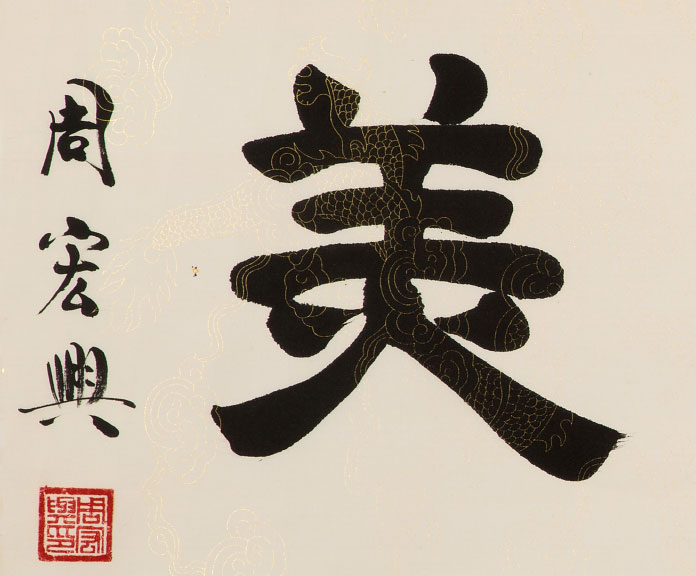 美
周宏興
周宏
興印